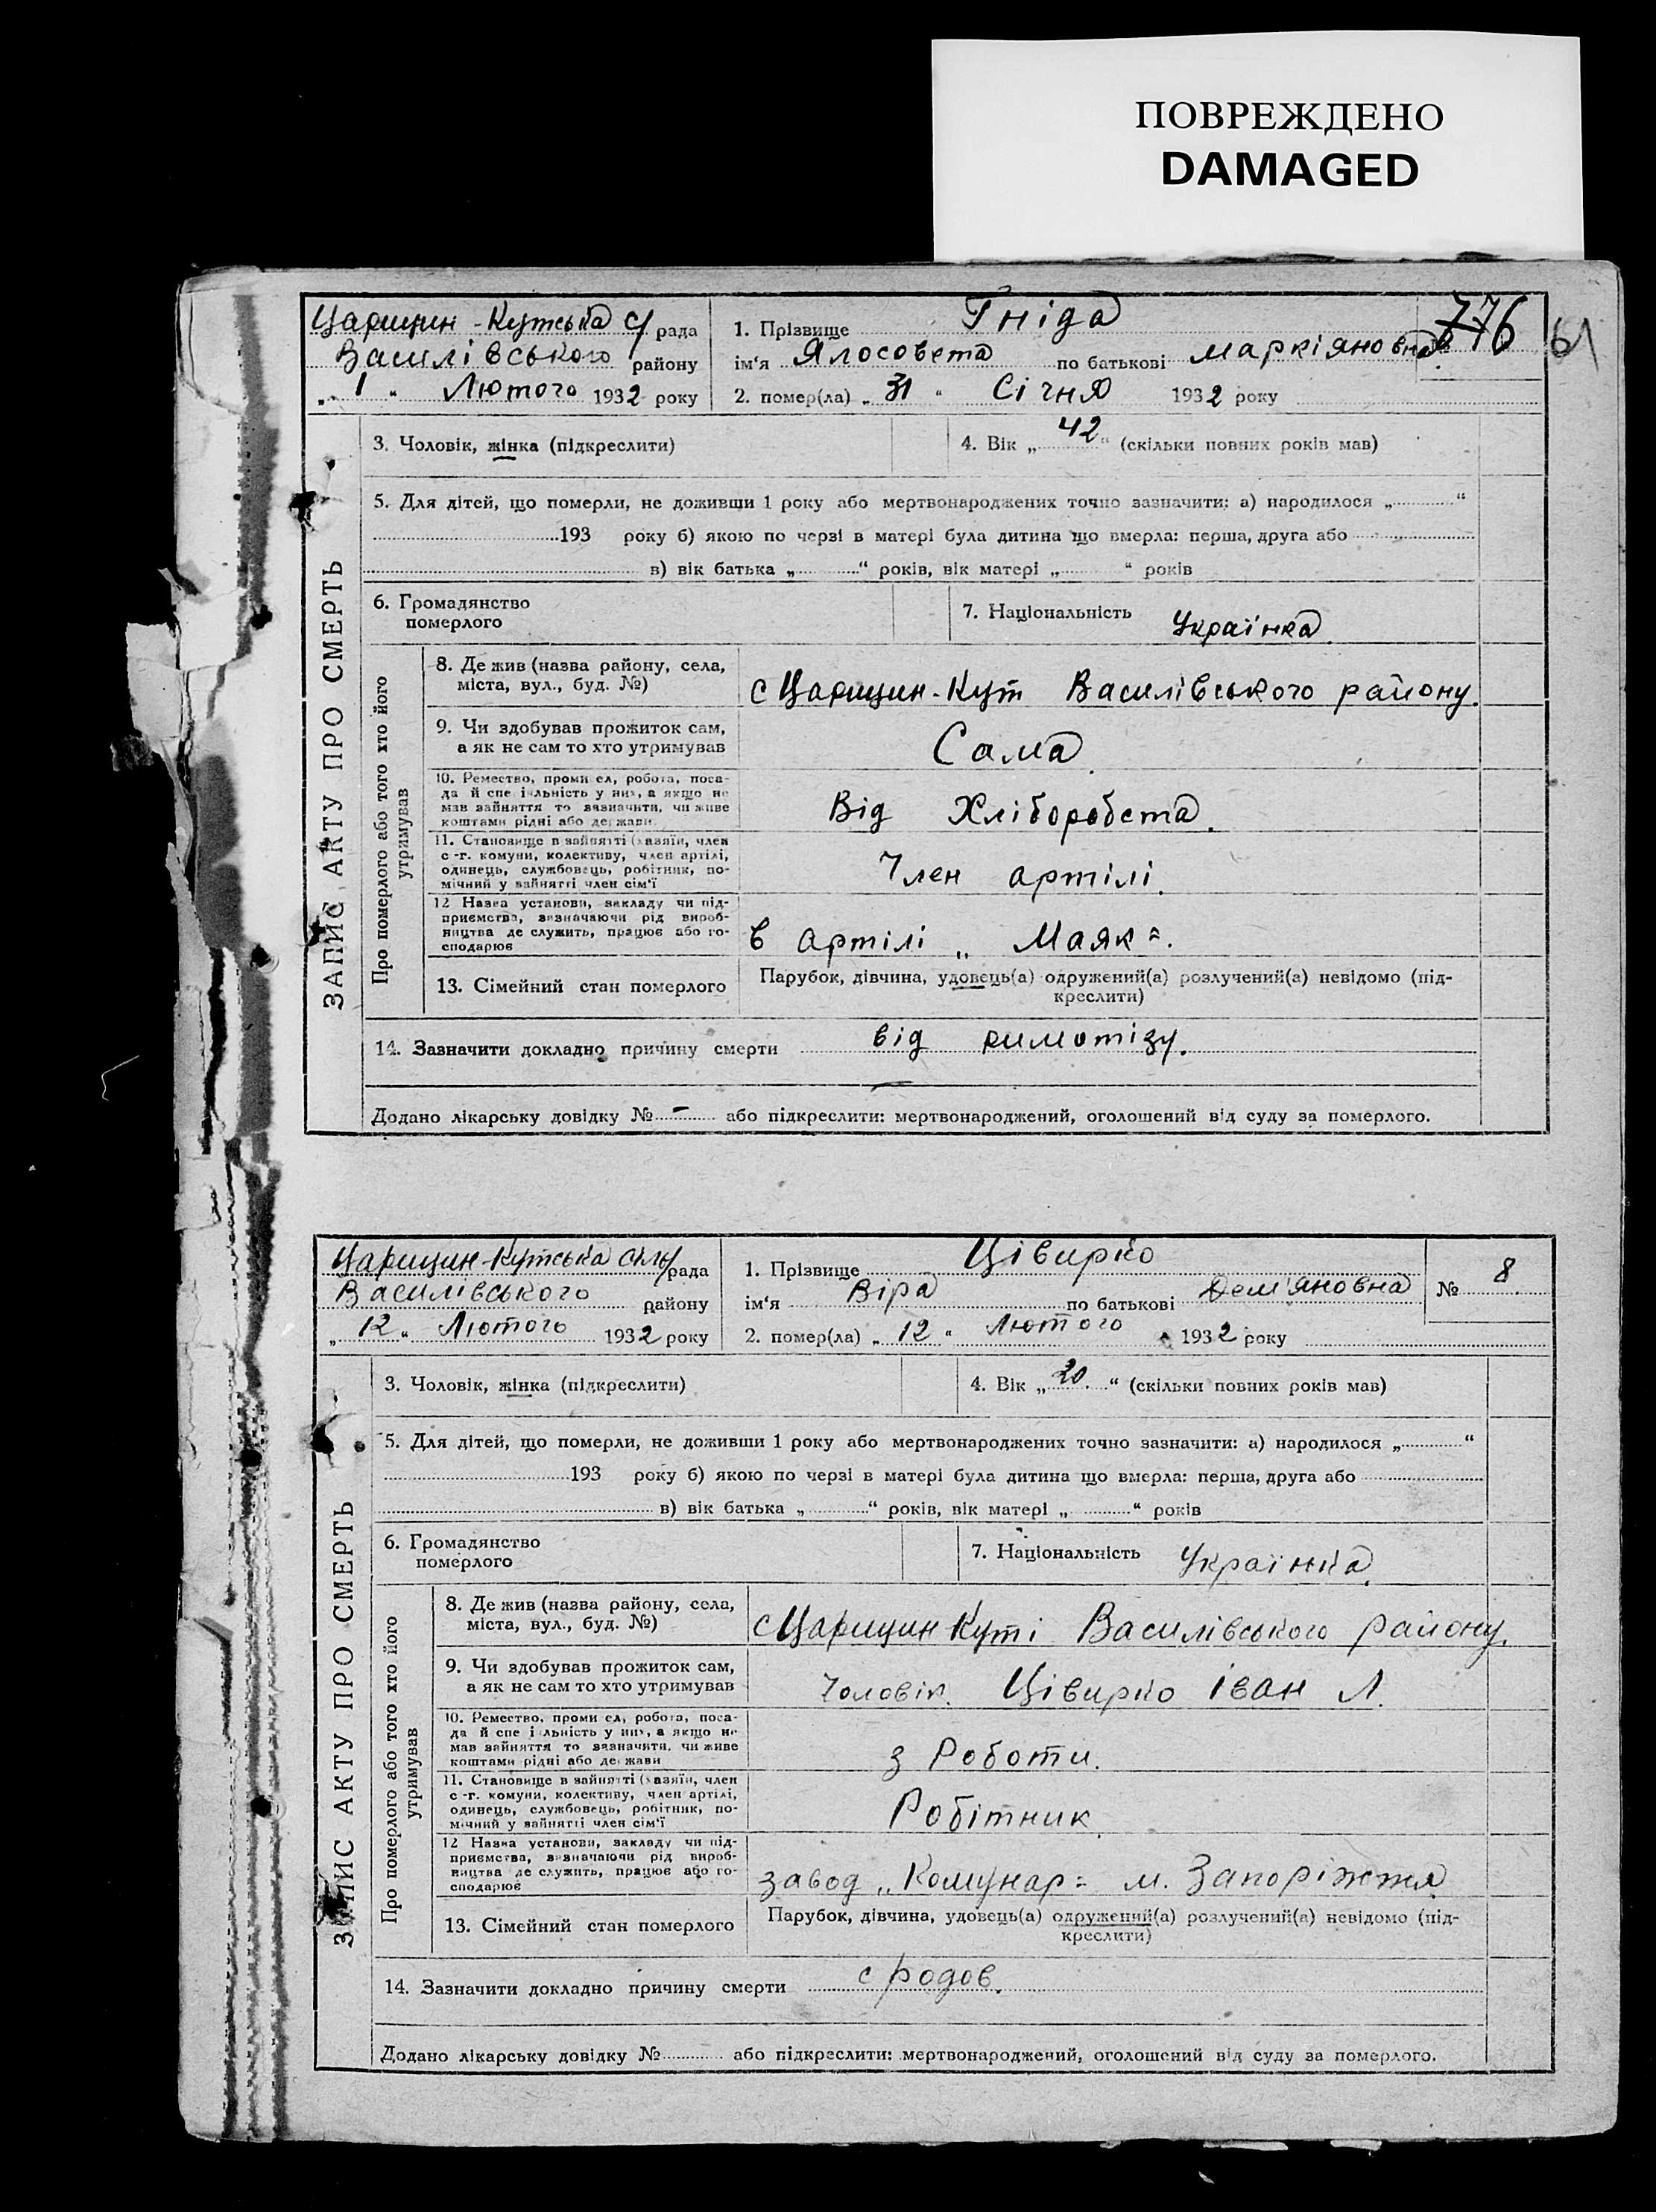 ПОВРЕЖДЕНО
DAMAGED
Царицин-Кутська с/рада
Василівського району
„ 1 “ Лютого 1932 року
1. Прізвище Гніда
ім‘я Ялосовета по батькові маркіяновна
776
61
2. помер(ла) „ 31 “ Січня 1932 року
ЗАПИС АКТУ ПРО СМЕРТЬ
3. Чоловік, жінка (підкреслити)
4. Вік „ 42 “ (скільки повних років мав)
5. Для дітей, що померли, не доживши 1 року або мертвонароджених точно зазначити: а) народилося „ “
193 року б) якою по черзі в матері була дитина що вмерла: перша, друга або
в) вік батька „ “ років, вік матері „ “ років
6. Громадянство
померлого
7. Національність Українка
Про померлого або того хто його
утримував
8. Де жив (назва району, села,
міста, вул., буд. №)
с Царицин-Кут Василівського району.
9. Чи здобував прожиток сам,
а як не сам то хто утримував
Сама.
10. Ремество, промисел, робота, поса-
да й спеціяльність у них, а якщо не
мав зайняття то зазначити, чи живе
коштами рідні або держави
Від Хліборобста.
11. Становище в зайнятті (хазяїн, член
с.-г. комуни, колективу, член артілі,
одинець, службовець, робітник, по-
мічний у зайнятті член сім‘ї
Член артілі.
12 Назва установи, закладу чи під-
приємства, зазначаючи рід вироб-
ництва де служить, працює або го-
сподарює
в артілі „ Маяк “.
13. Сімейний стан померлого
Парубок, дівчина, удовець(а) одружений(а) розлучений(а) невідомо (під-
креслити)
14. Зазначити докладно причину смерти від римотізу.
Додано лікарську довідку № - або підкреслити: мертвонароджений, оголошений від суду за померлого.
Царицин-Кутська сіль/рада
Василівського району
„ 12 “ Лютого 1932 року
1. Прізвище Цівирко
ім‘я Віра по батькові Дем'яновна
№ 8.
2. помер(ла) „ 12 “ Лютого 1932 року
ЗАПИС АКТУ ПРО СМЕРТЬ
3. Чоловік, жінка (підкреслити)
4. Вік „ 20. “ (скільки повних років мав)
5. Для дітей, що померли, не доживши 1 року або мертвонароджених точно зазначити: а) народилося „ “
193 року б) якою по черзі в матері була дитина що вмерла: перша, друга або
в) вік батька „ “ років, вік матері „ “ років
6. Громадянство
померлого
7. Національність Українка.
Про померлого або того хто його
утримував
8. Де жив (назва району, села,
міста, вул., буд. №)
с Царицин Куті Василівського району.
9. Чи здобував прожиток сам,
а як не сам то хто утримував
Чоловік. Цівирко Іван Л.
10. Ремество, промисел, робота, поса-
да й спеціяльність у них, а якщо не
мав зайняття то зазначити, чи живе
коштами рідні або держави
з Роботи.
11. Становище в зайнятті (хазяїн, член
с.-г. комуни, колективу, член артілі,
одинець, службовець, робітник, по-
мічний у зайнятті член сім‘ї
Робітник.
12 Назва установи, закладу чи під-
приємства, зазначаючи рід вироб-
ництва де служить, працює або го-
сподарює
завод „Комунар“ м. Запоріжжя
13. Сімейний стан померлого
Парубок, дівчина, удовець(а) одружений(а) розлучений(а) невідомо (під-
креслити)
14. Зазначити докладно причину смерти с родов.
Додано лікарську довідку № або підкреслити: мертвонароджений, оголошений від суду за померлого.